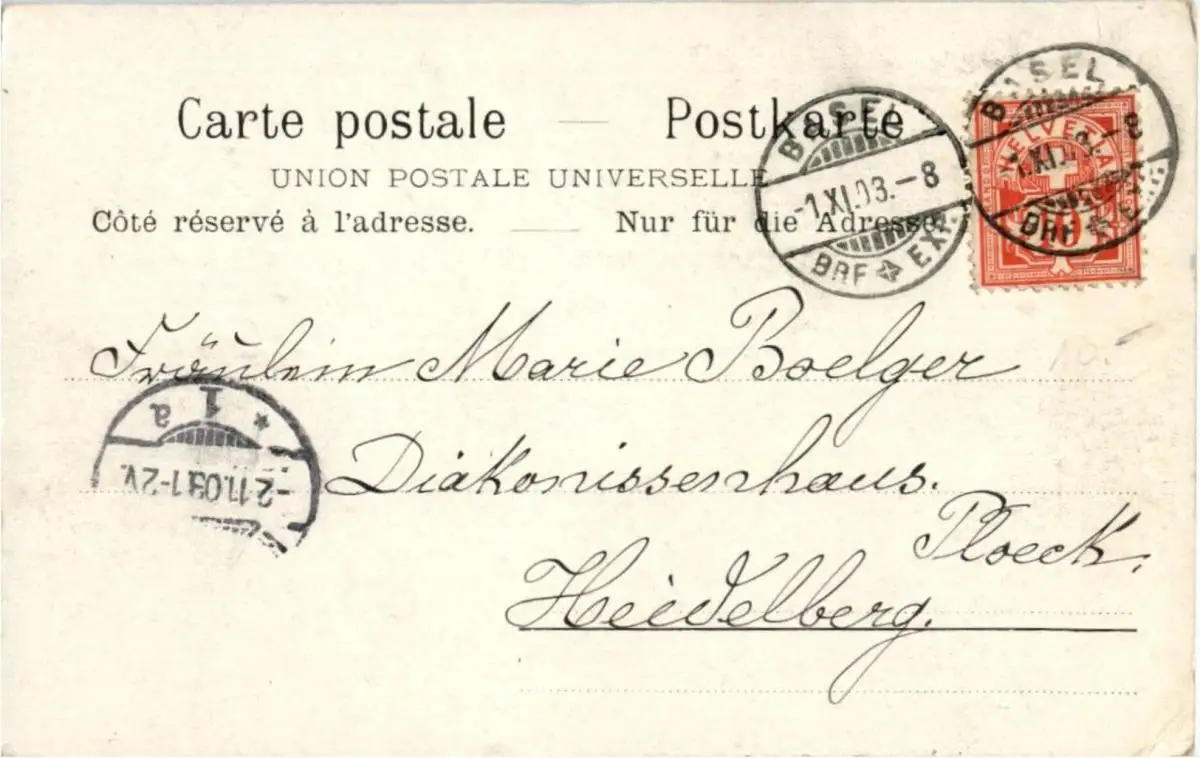 Carte postale — Postkarte
UNION POSTALE UNIVERSELLE
Côté réservé à l'adresse. — Nur für die Adresse.
BASEL
-1.XI.03.-8
BRF EXP.
BASEL
1.XI.03.-8
BRF EX
HELVETIA
10
10.-
Fräulein Marie Boelger
* 1 a
-2.11.03.1-2V.
Diakonissenhaus.
Ploeck.
Heidelberg.